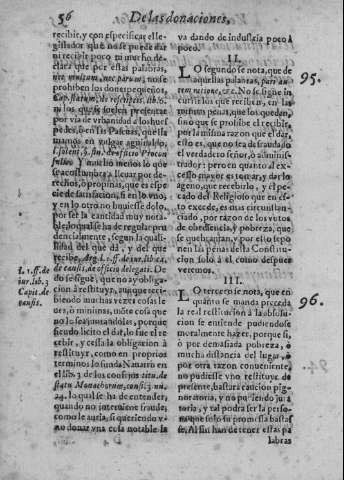 56 De las donaciones,
recibir, y con especificar el le-
gislador que no se puede dar
ni recibir poco ni mucho, de-
clara que por estas palabras,
nec nimium, nec parum, no se
prohiben los dones pequeños,
los que suelen presentar
por via de vrbanidad a los hues-
pedes, ò en las Pascuas, que lla
mamos en vulgar aguinaldo,
l. solent, §. fin. de officio Procon
sulis. Y mucho menos lo que
se acostumbra a lleuar por de-
rechos, o propinas, que es espe
cie de satisfacion, si en lo vno,
y en lo otro no huuiesse dolo,
por ser la cantidad muy nota-
ble, lo qual se ha de regular pru
dencialmente, segun la quali-
dad del que dà, y del que
recibe, Arg. l. 1. ff. de iur. lib. ex.
de causis, de officio delegati. De
do se sigue, que no ay obligacion
a restituyr, aunque reci-
biendo muchas vezes cosas le
ues, ò minimas, mõte cosa que
no lo sea, juntandoles, porque
siendo licito el dar, lo fue el re
cebir, y cessa la obligacion à
restituyr, como en proprios
terminos lo funda Nauarro en
el lib. 3. de los consejos titu. de
statu Monachorum, consi. 3. nu.
24. lo qual se ha de entender,
quando no interuiene fraude,
como le auria, si queriendo v-
no donar vna cosa notable la
l. 1. ff. de
iur. lib. 3
Capis. de
causis.
va dando de industria poco à
poco.
II.
LO segundo se nota, que de
aquellas palabras, pari au-
tem ratione, &c. No se sigue in
currir los que reciben, en las
mismas penas, que los que dan,
sino que se prohibe el recibir,
por la misma razon que el dar,
esto es, que no sea defraudado
el verdadero señor, ò adminis-
trador: pero en quanto al ex-
cesso mayor es tomar, y dar lo
ageno, que recebirlo, y el pe-
cado del Religioso que en es-
to excede, es mas circunstan-
ciado, por razon de los votos
de obediencia, y pobreza, que
se quebrantan, y por esso se po
nen la pena desta Constitu-
cion solo à el como despues
veremos.
95.
III.
LO tercero se nota, que en
quanto se manda preceda
la real restitucion à la absolu-
cion se entiende pudiendose
moralmente hazer, porque si,
ò por demasiada pobreza, ò
mucha distancia del lugar, ò
por otra razon conueniente,
no pudiesse vno restituyr de
presente, bastarà caucion pig-
noratoria, y no pudiendo jura
toria, y tal podra ser la perso-
na que solo su promessa bastas
se. Assi se han de tener estas pa
labras
96.